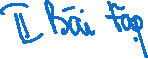 II Bài tập